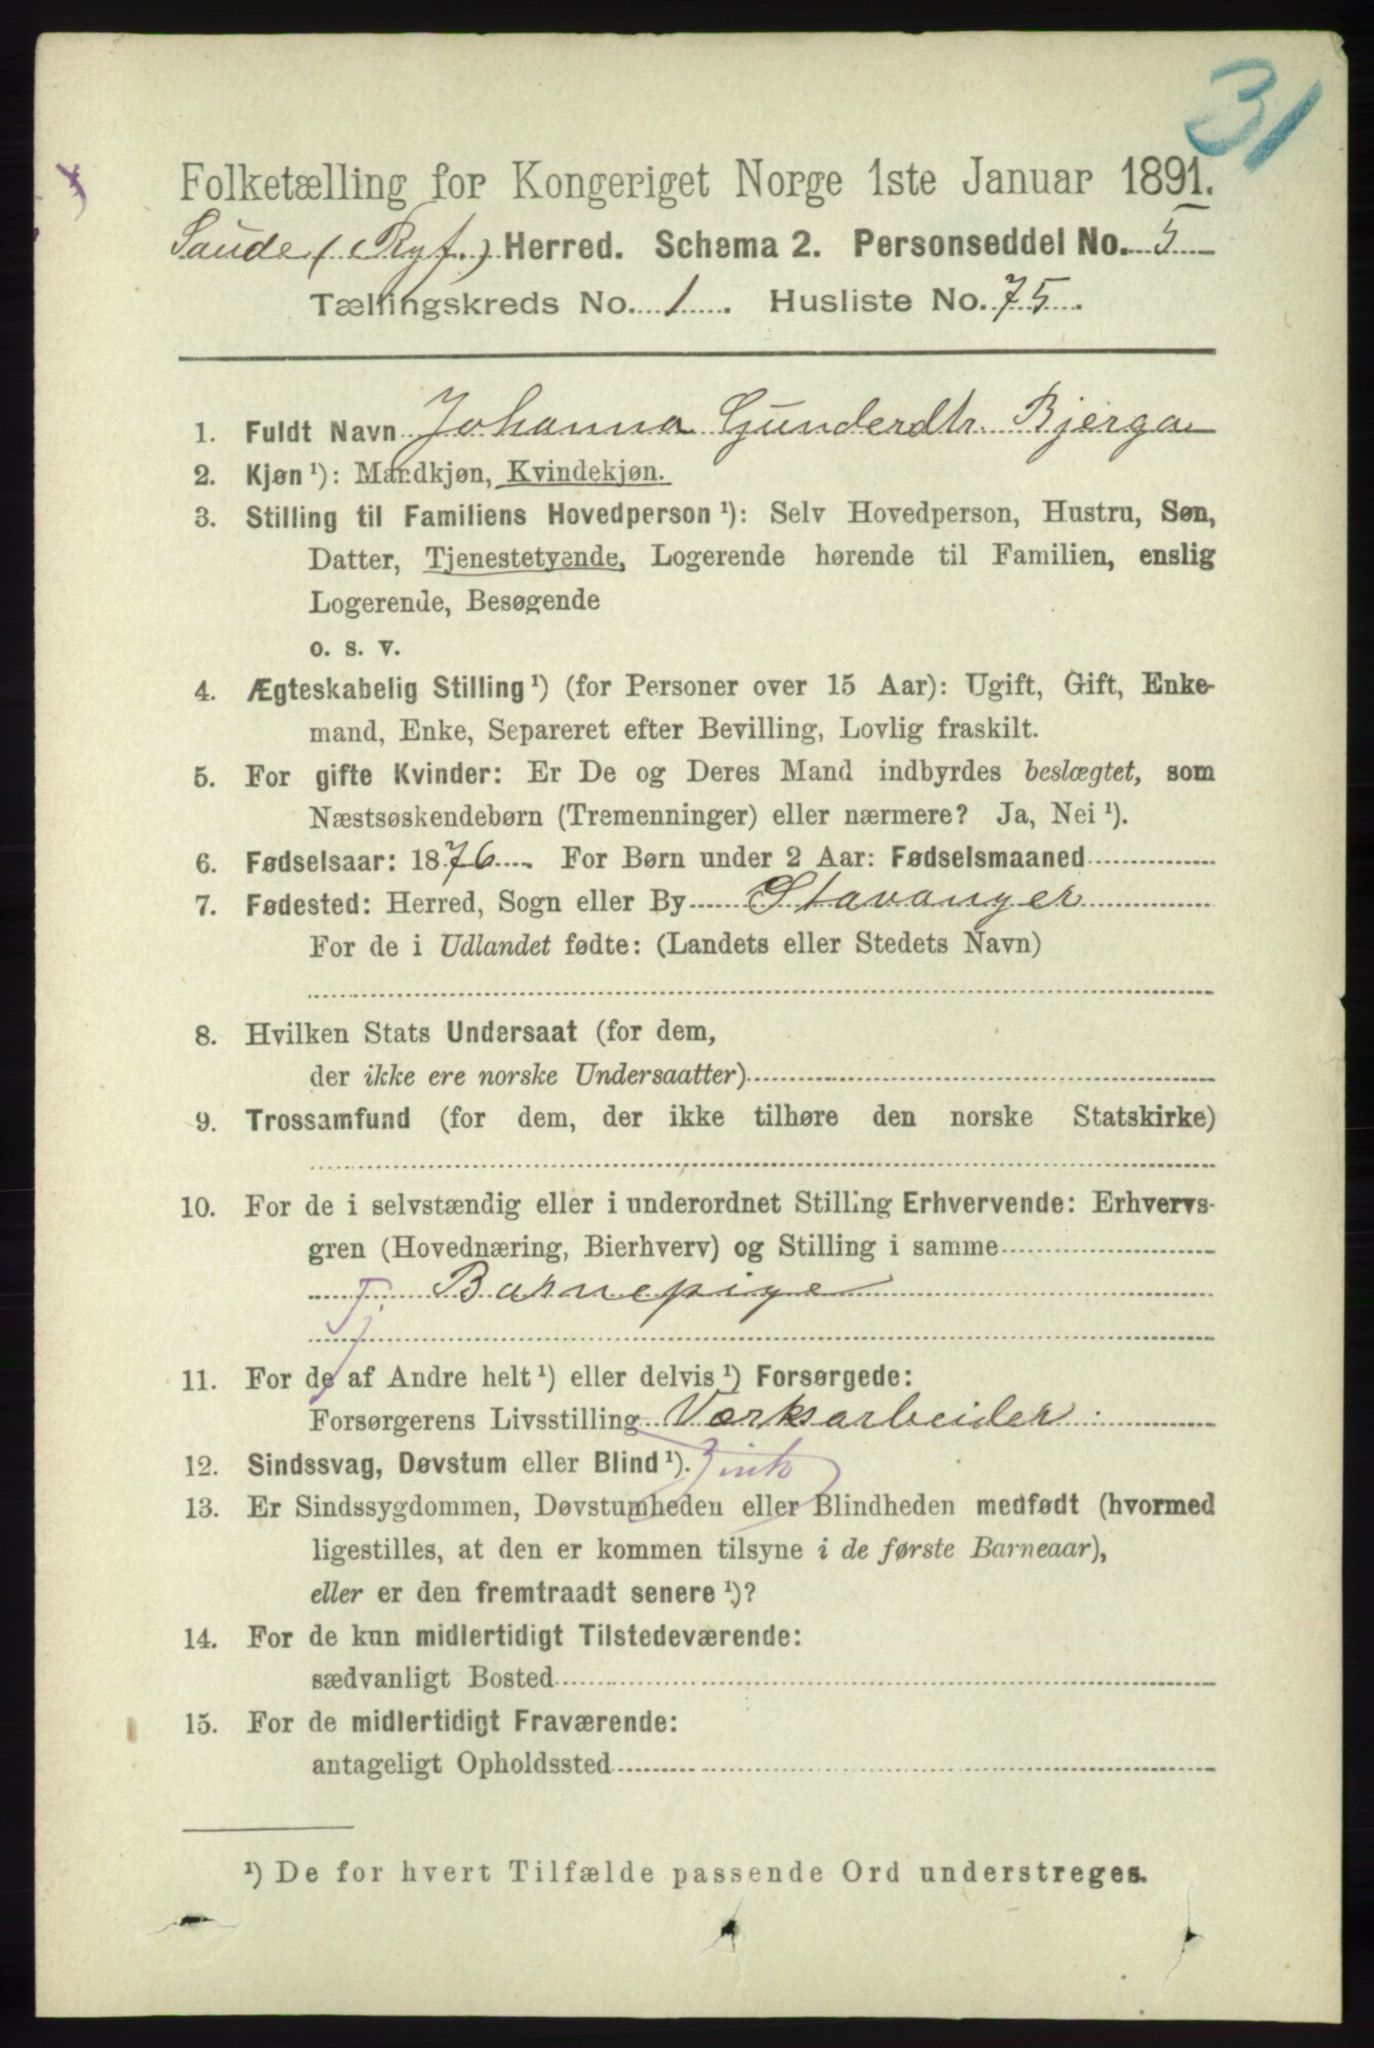 31
Folketælling for Kongeriget Norge 1ste Januar 1891.
Saude (Ryf.) Herred. Schema 2. Personseddel No. 5
Tællingskreds No. 1. Husliste No. 75.
1. Fuldt Navn Johanna Gunderdtr. Bjerga
2. Kjøn ¹): Mandkjøn, Kvindekjøn.
3. Stilling til Familiens Hovedperson ¹): Selv Hovedperson, Hustru, Søn,
Datter, Tjenestetyende, Logerende hørende til Familien, enslig
Logerende, Besøgende
o. s. v.
4. Ægteskabelig Stilling ¹) (for Personer over 15 Aar): Ugift, Gift, Enke-
mand, Enke, Separeret efter Bevilling, Lovlig fraskilt.
5. For gifte Kvinder: Er De og Deres Mand indbyrdes beslægtet, som
Næstsøskendebørn (Tremenninger) eller nærmere? Ja, Nei ¹).
6. Fødselsaar: 1876. For Børn under 2 Aar: Fødselsmaaned
7. Fødested: Herred, Sogn eller By Stavanger
For de i Udlandet fødte: (Landets eller Stedets Navn)
8. Hvilken Stats Undersaat (for dem,
der ikke ere norske Undersaatter)
9. Trossamfund (for dem, der ikke tilhøre den norske Statskirke)
10. For de i selvstændig eller i underordnet Stilling Erhvervende: Erhvervs-
gren (Hovednæring, Bierhverv) og Stilling i samme
Tj. Barnepige
11. For de af Andre helt ¹) eller delvis ¹) Forsørgede:
Forsørgerens Livsstilling Værksarbeider
12. Sindssvag, Døvstum eller Blind ¹). Zink
13. Er Sindssygdommen, Døvstumheden eller Blindheden medfødt (hvormed
ligestilles, at den er kommen tilsyne i de første Barneaar),
eller er den fremtraadt senere ¹)?
14. For de kun midlertidigt Tilstedeværende:
sædvanligt Bosted
15. For de midlertidigt Fraværende:
antageligt Opholdssted
¹) De for hvert Tilfælde passende Ord understreges.